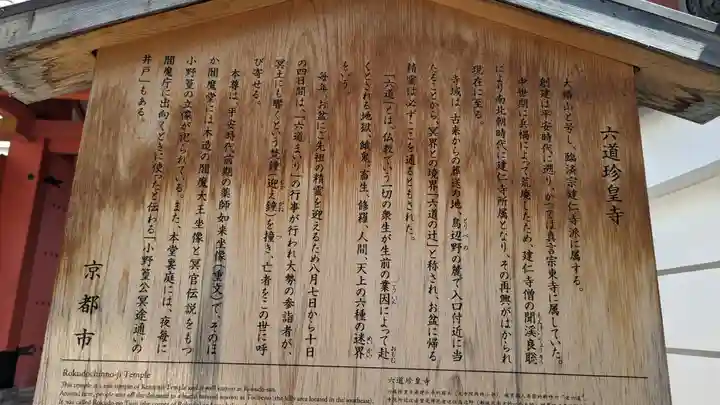 六道珍皇寺
大椿山と号し、臨済宗建仁寺派に属する。
創建は平安時代に遡り、かつては真言宗東寺に属していた。
中世期に兵燹によって荒廃したため、建仁寺僧の聞渓良聡
により南北朝時代に建仁寺所属となり、その再興がはかられ
現在に至る。
寺域は、古来からの葬送の地、鳥辺野の麓で入口付近に当
たることから、冥界との境界「六道の辻」と称され、お盆に帰る
精霊は必ずここを通るともされた。
「六道」とは、仏教でいう一切の衆生が生前の業因によって赴
くとされる地獄、餓鬼、畜生、修羅、人間、天上の六種の迷界
をいう。
毎年、お盆にご先祖の精霊を迎えるため八月七日から十日
の四日間は、「六道まいり」の行事が行われ大勢の参詣者が、
冥土にも響くという梵鐘「迎え鐘」を撞き、亡者をこの世に呼
び寄せる。
本尊は、平安時代前期の薬師如来坐像(重文)で、そのほ
か閻魔堂には木造の閻魔大王坐像と冥官伝説をもつ
小野篁の立像が祀られている。また、本堂裏庭には、夜毎に
閻魔庁に出向くときに使ったと伝わる「小野篁公冥途通いの
井戸」もある。
京都市
Rokudochinno-ji Temple
This temple is a sub-temple of Kennin-ji Temple and is well known as Rokudo-san.
六道珍皇寺